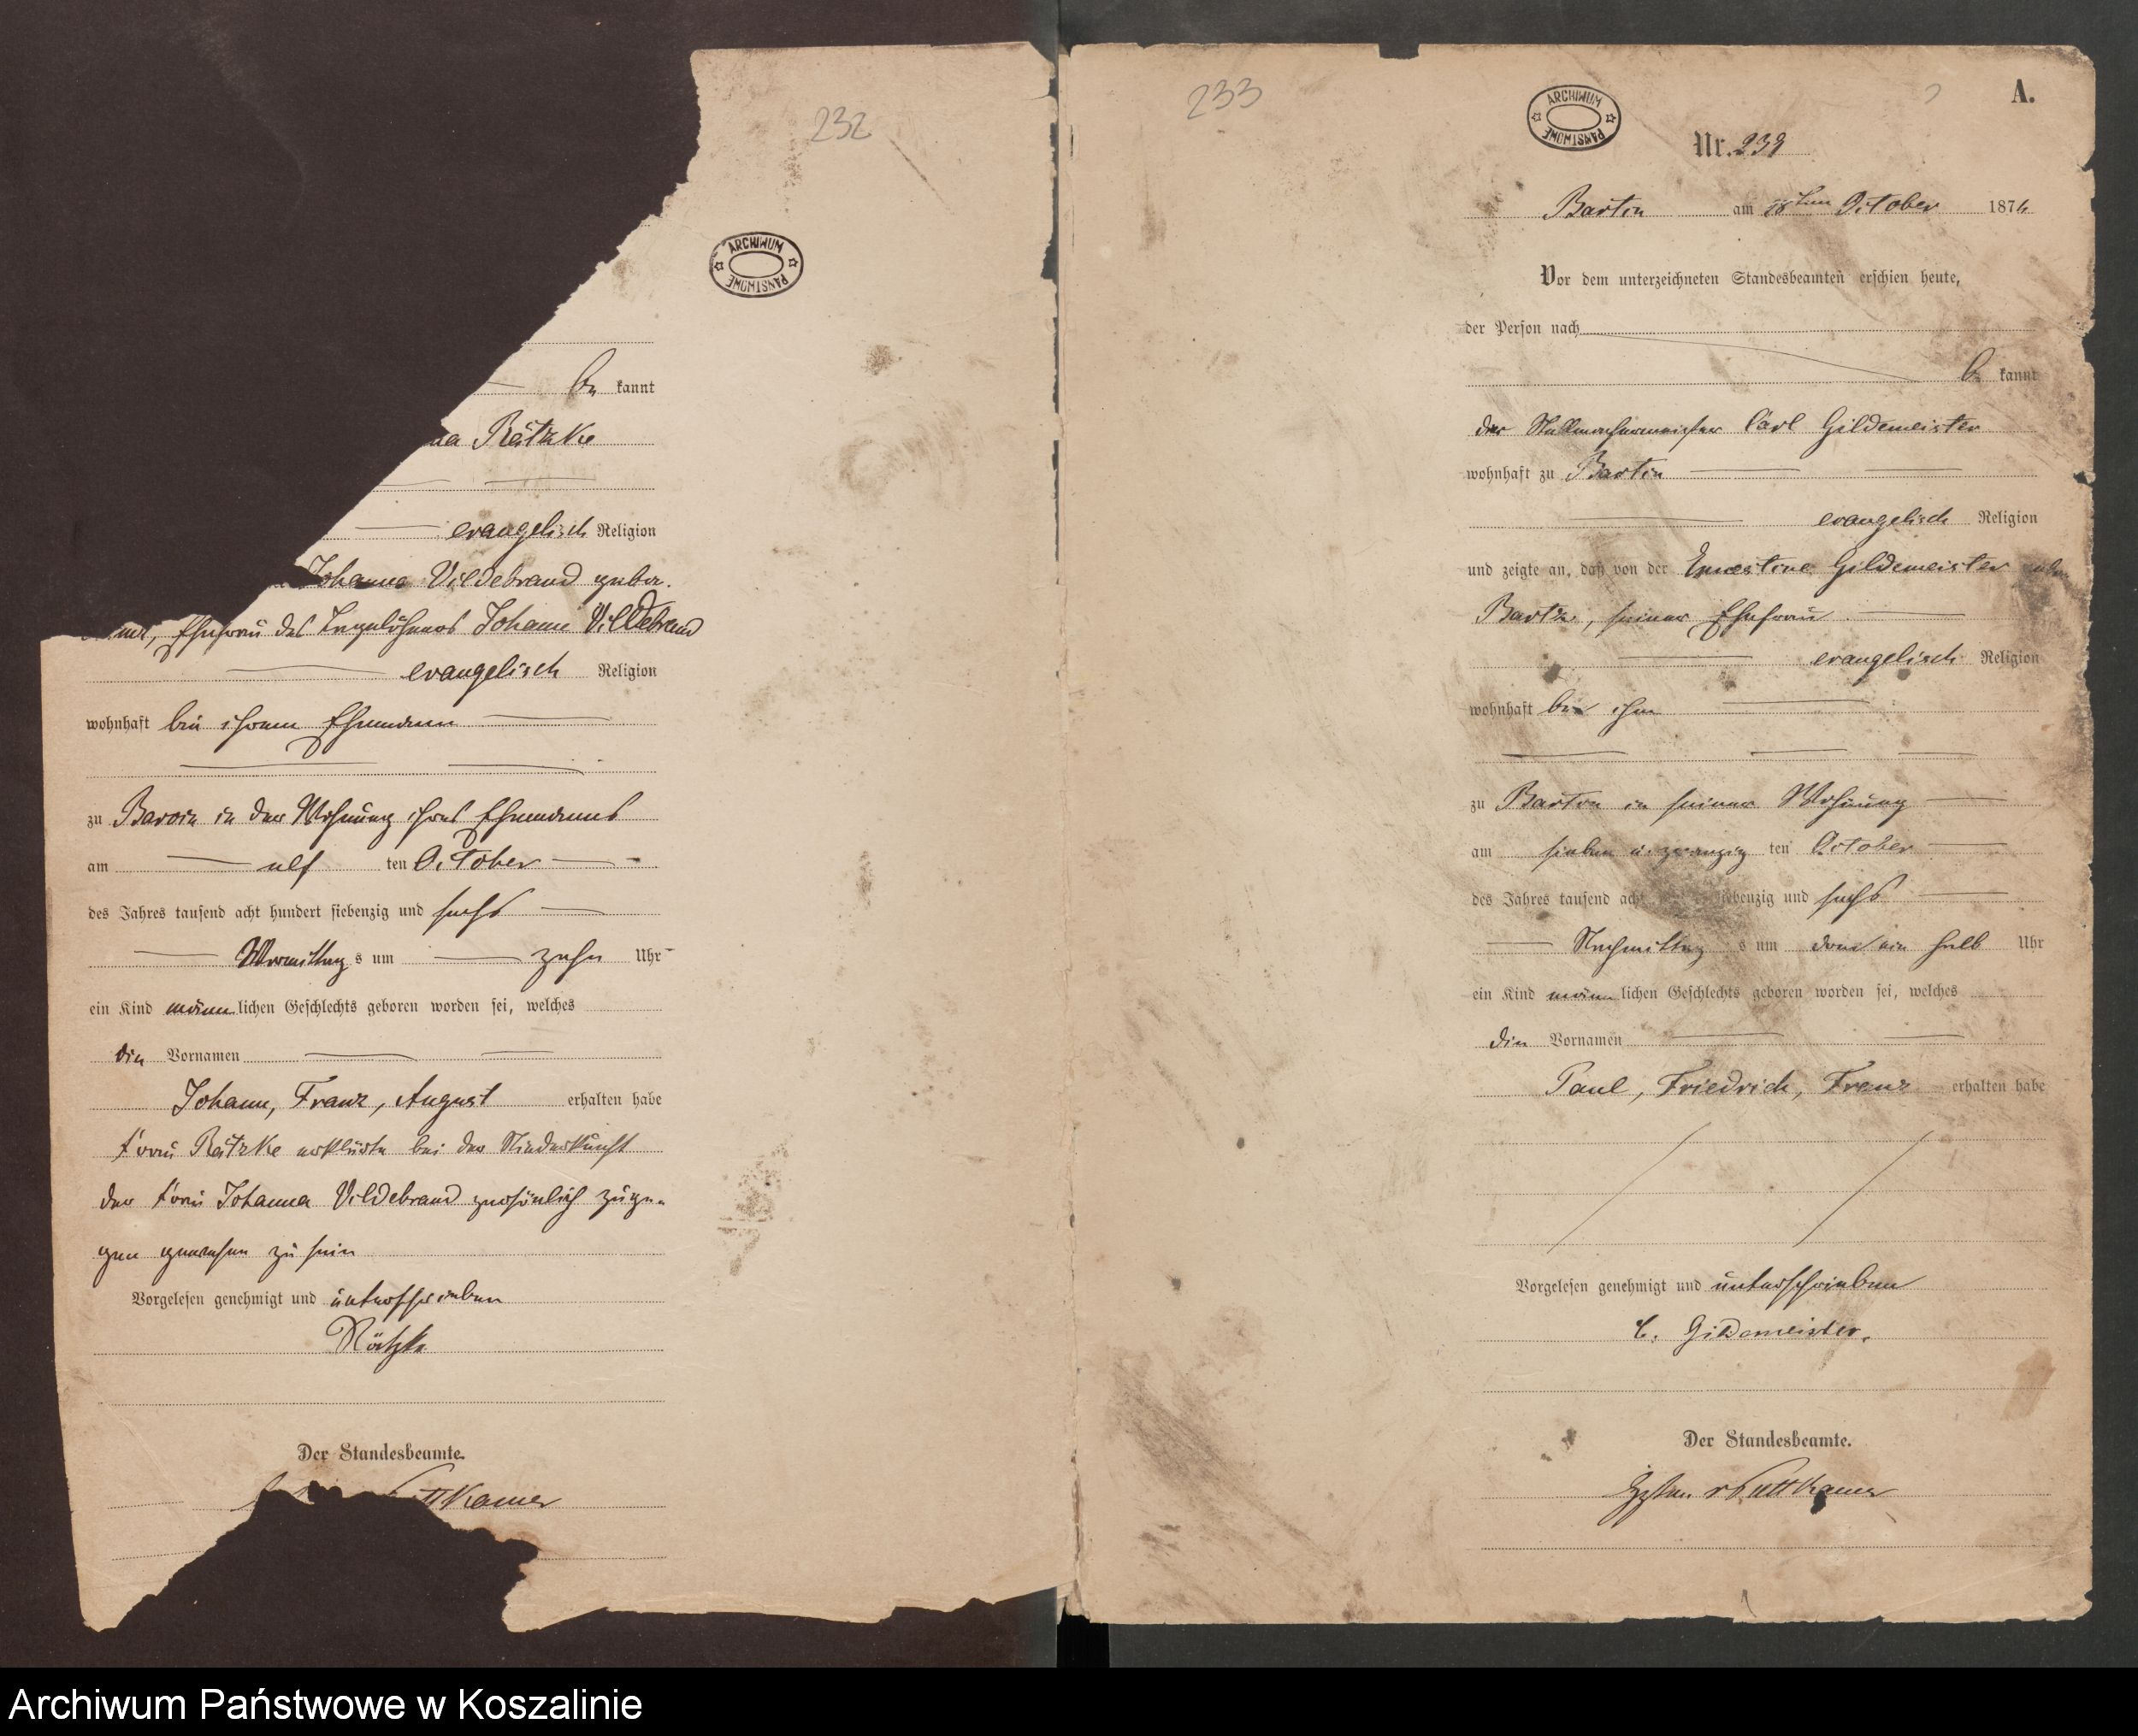 232
ARCHIWUM PAŃSTWOWE
be kannt
Rätzke
evangelisch Religion
Johanne Vildebrand gebor.
Ehefrau des Tagelöhners Johann Vildebrand
evangelisch Religion
wohnhaft bei ihrem Ehemann
zu Barvin in der Wohnung ihres Ehemanns
am elf ten October
des Jahres tausend acht hundert siebenzig und sechs
Vormittag s um zehn Uhr
ein Kind männ lichen Geschlechts geboren worden sei, welches
die Vornamen
Johann, Franz, August erhalten habe
Frau Rätzke erklärte bei der Niederkunft
der Frau Johanna Vildebrand persönlich zuge-
gen gewesen zu sein
Vorgelesen genehmigt und unterschrieben
Rätzke
Der Standesbeamte.
ttkamer
233
ARCHIWUM PAŃSTWOWE
A.
Nr. 239
Bartin am 28ten October 1876
Vor dem unterzeichneten Standesbeamten erschien heute,
der Person nach
be kannt
der Stellmachermeister Carl Gildemeister
wohnhaft zu Bartin
evangelisch Religion
und zeigte an, daß von der Ernestine Gildemeister
Bartz, seiner Ehefrau
evangelisch Religion
wohnhaft bei ihm
zu Bartin in seiner Wohnung
am sieben u. zwanzig ten October
des Jahres tausend acht siebenzig und sechs
Nachmittag s um drei ein halb Uhr
ein Kind männ lichen Geschlechts geboren worden sei, welches
die Vornamen
Paul, Friedrich, Franz erhalten habe
Vorgelesen genehmigt und unterschrieben
C. Gildemeister.
Der Standesbeamte.
v Puttkamer
Archiwum Państwowe w Koszalinie